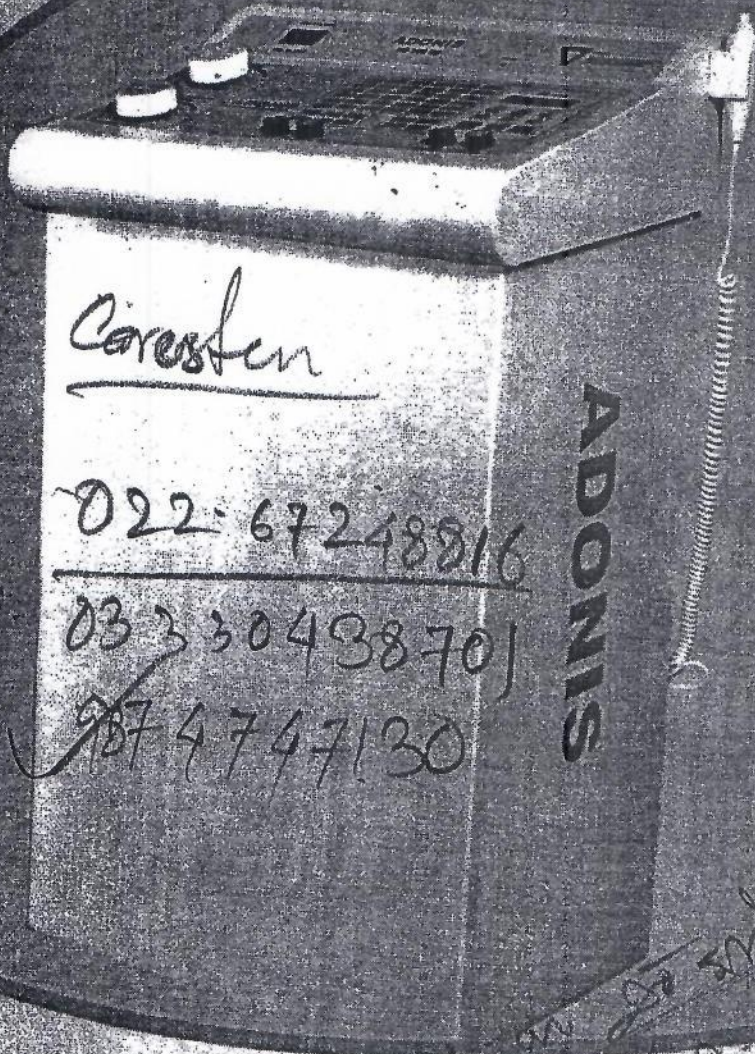 ADONIS
Caresten
022-67248816
03330438701
9874747130
ADONIS